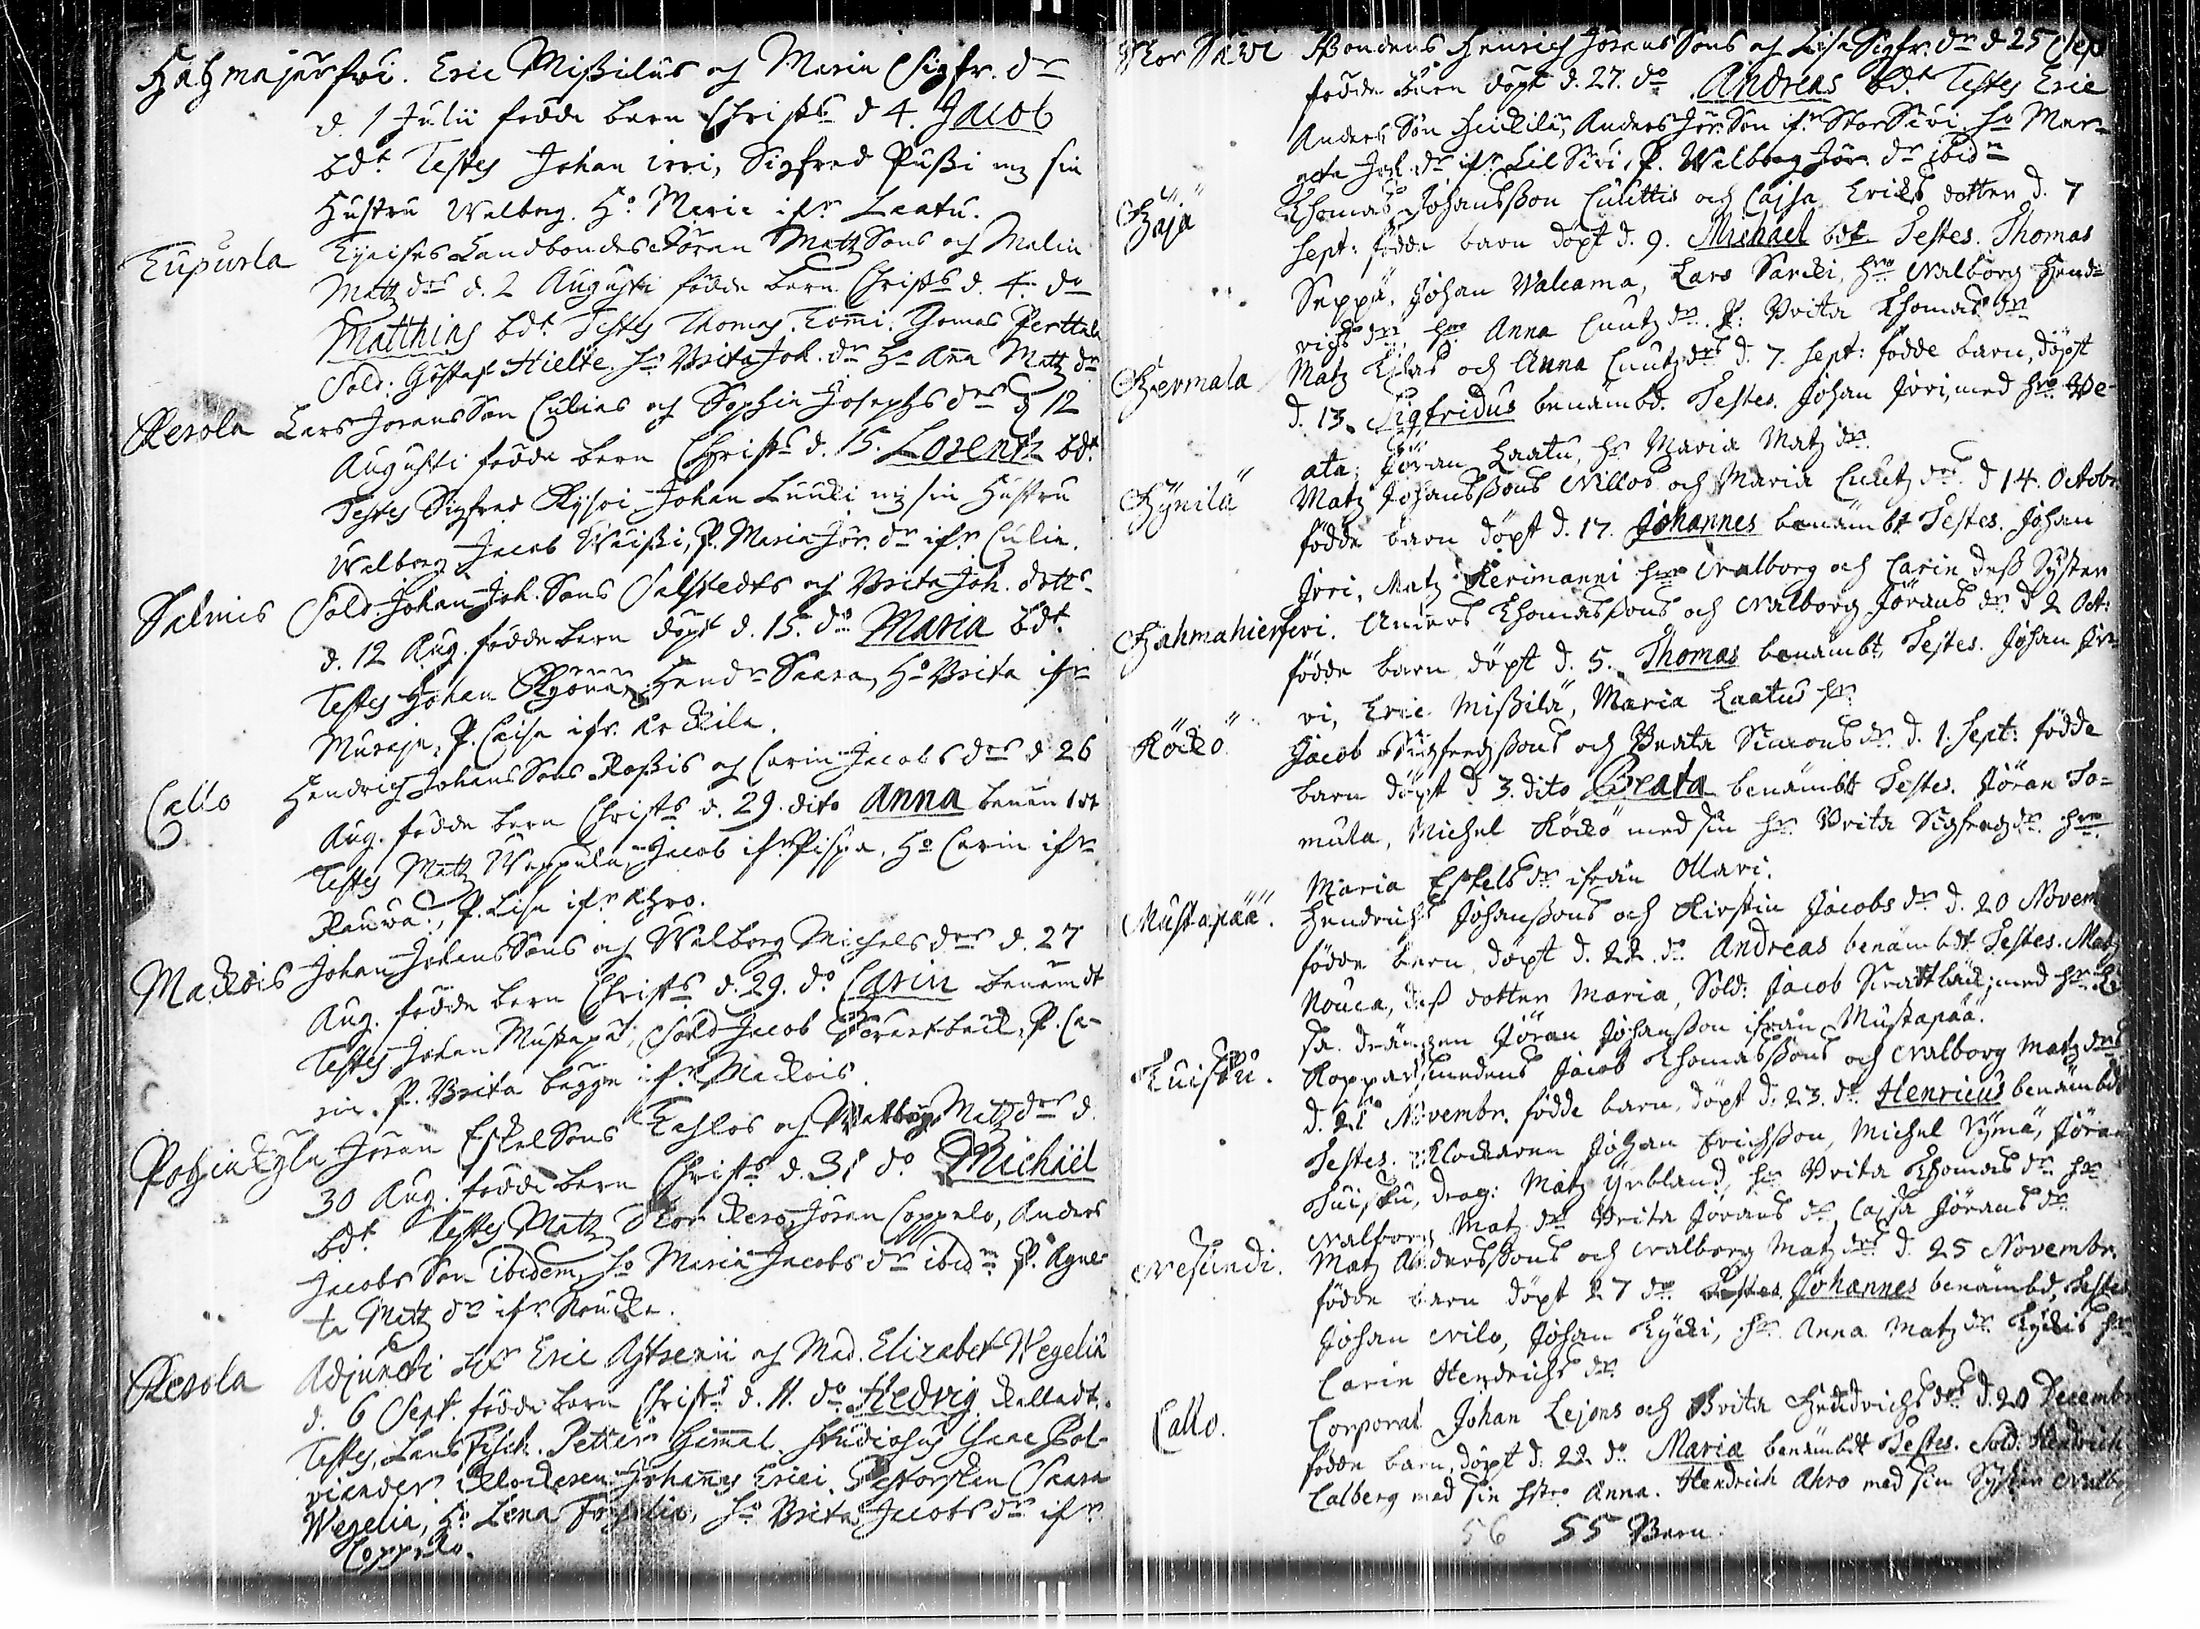 Hahmajärfwi. Eric Mißilus och Maria Sigfr. dr
d. 1 Julii födde barn Christs d 4. Jacob
bdt Testes Johan irri, Sigfred Pußi mz sin
Hustru Walborg. Ho Maria ifr Laatu.
Tupurla Landbondes Jöran Matz Sons och Malin
Matz drs d. 2 Augusti födde barn Christs d. 4. do
Matthias bdt Testes Thomas Tommi. Thomas Perttala
Sold: Gustaf Hielte. Ho Brita Joh. dr Ho Anna Matz dr
Kerola Lars Jörans Son Culias och Sophia Josephs drs d 12
Augusti födde barn Christs d. 15. Lorentz bdt
Testes Sigfred Kysoi Johan Luuki mz sin Hustru
Walborg Jacob P. Maria Jör. dr ifr Culia.
Salmis Sold Johan Joh. Sons Salstedts och Brita Joh. dotts
d. 12 Aug. födde barn döpt d. 15. do Maria bdt
Testes Johan Hendr Saara, Ho Brita ifr
P. Caisa ifr.
Callo Hendrich Johans Sons Roßis och Carin Jacobs drs d 26
Aug. födde barn Christs d. 29. dito Anna benämbdt
Testes Matz Weppula, Jacob ifr Pispa, Ho Carin ifr
P. Lisa ifr Ahro.
Mackois Johan Johans Sons och Walborg Michels drs d. 27
Aug. födde barn Christs d. 29. do Carin benämdt
Testes Johan Mustapä, Sold Jacob P. Ca-
rin. P. Brita begge ifr Mackois.
Pohjankylä Jöran Eskel Sons och Walborg Matz drs d.
30 Aug. födde barn Christs d. 31 do Michäel
bdt Testes Matz Jöran Coppelo, Anders
Jacobs Son ibidem, Ho Maria Jacobs dr ibidm P. Agne-
ta Matz dr ifr
Kerola Adjuncti Hr Eric och Mad. Elizabet Wegelia
d. 6 Sept. födde barn Christs d. 11. do Hedvig kallad.
Testes, Lans Fisch. Petter Gammal. Studiosus Isaac Pol-
viander Klockaren Johannes Erici. Pastorskan Saara
Wegelia, Ho Lena Ho Brita Jacobs dr ifr
Coppelo.
Stor Säivi Bondens Henrich Jörans Sons och Lisa Sigfr. dr d 25 Sep
födde barn döpt d. 27. do Andreas bdt Testes Eric
Anders Son Anders Jör. Son ifr Stor Säivi Ho Mar-
geta Joh. dr ifr Lil Säivi, P. Walborg Jör. dr ibidm
Haja Thomas Johansson Culittis och Cajsa Erichs dotter d. 7
Sept: födde barn döpt d. 9. Michael bdt Testes. Thomas
Seppä. Johan Waliama, Lars Sarcki, Hro Walborg Hend-
richs dr, Hro Anna Cnutz dr. P: Brita Thomas dr
Hermala Matz och Anna Cnutz drs d. 7. Sept: födde barn, döpt
d. 13. Sigfridus benämbd. Testes. Johan Jrri, med Hro Be-
ata; Jöran Laatu, Hr Maria Matz dr.
Hynilä Matz Johanssons Nillos och Maria Cnutz drs d 14. Octobr
födde barn döpt d. 17. Johannes benämbt Testes. Johan
Jrri, Matz Herimanni Hro Walborg och Carin deß Syster
Hahmahierfwi. Anders Thomassons och Walborg Jörans dr d 2 Oct:
födde barn döpt d. 5. Thomas benämbt, Testes. Johan Jr-
vi, Eric Mißilä, Maria Laatus Hr
Köckö Jacob Sigfredssons och Beata Simons dr. d. 1. Sept: födde
barn döpt d 3. dito Beata benämbt Testes. Jöran To-
mula, Michel Köckö med sin Hr. Brita Sigfredz dr. Hro
Maria Eskels dr ifrån Ollari.
Mustapää. Hendrich Johanssons och Kirstin Jacobs dr d. 20 Novem
födde barn, döpt d. 22. do Andreas benämbdt Testes. Matz
Nouca, deß dotter Maria, Sold: Jacob med Hr
drängen Jöran Johansson ifrån Mustapää.
Tuisku. Kopparsmedens Jacob Thomassons och Walborg Matz drs
d. 21 Novembr. födde barn, döpt d. 23. do Henricus benämbdt
Testes. Klockaren Johan Erichsson, Michel Rymä, Jöran
Tuisku, drag: Matz Yrbland, Hr Brita Thomas dr Hr
Walborg Matz dr Brita Jörans dr, Cajsa Jörans dr
Wesundi. Matz Anderssons och Walborg Matz drs d. 25 Novembr.
födde barn döpt 27 do Johannes benämbd, Testes
Johan Wilo, Johan Kycki, Hr Anna Matz dr Kyckis Hr
Carin Hendrichs dr
Callo. Corporal Johan Lejons och Brita Hendrichs drs d. 20 Decembr
födde barn, döpt d. 22 do Maria benämbdt Testes. Sold: Hendrich
Calberg med sin Hstro Anna. Hendrich Ahro med sin Syster Walbo
56 55 Barn